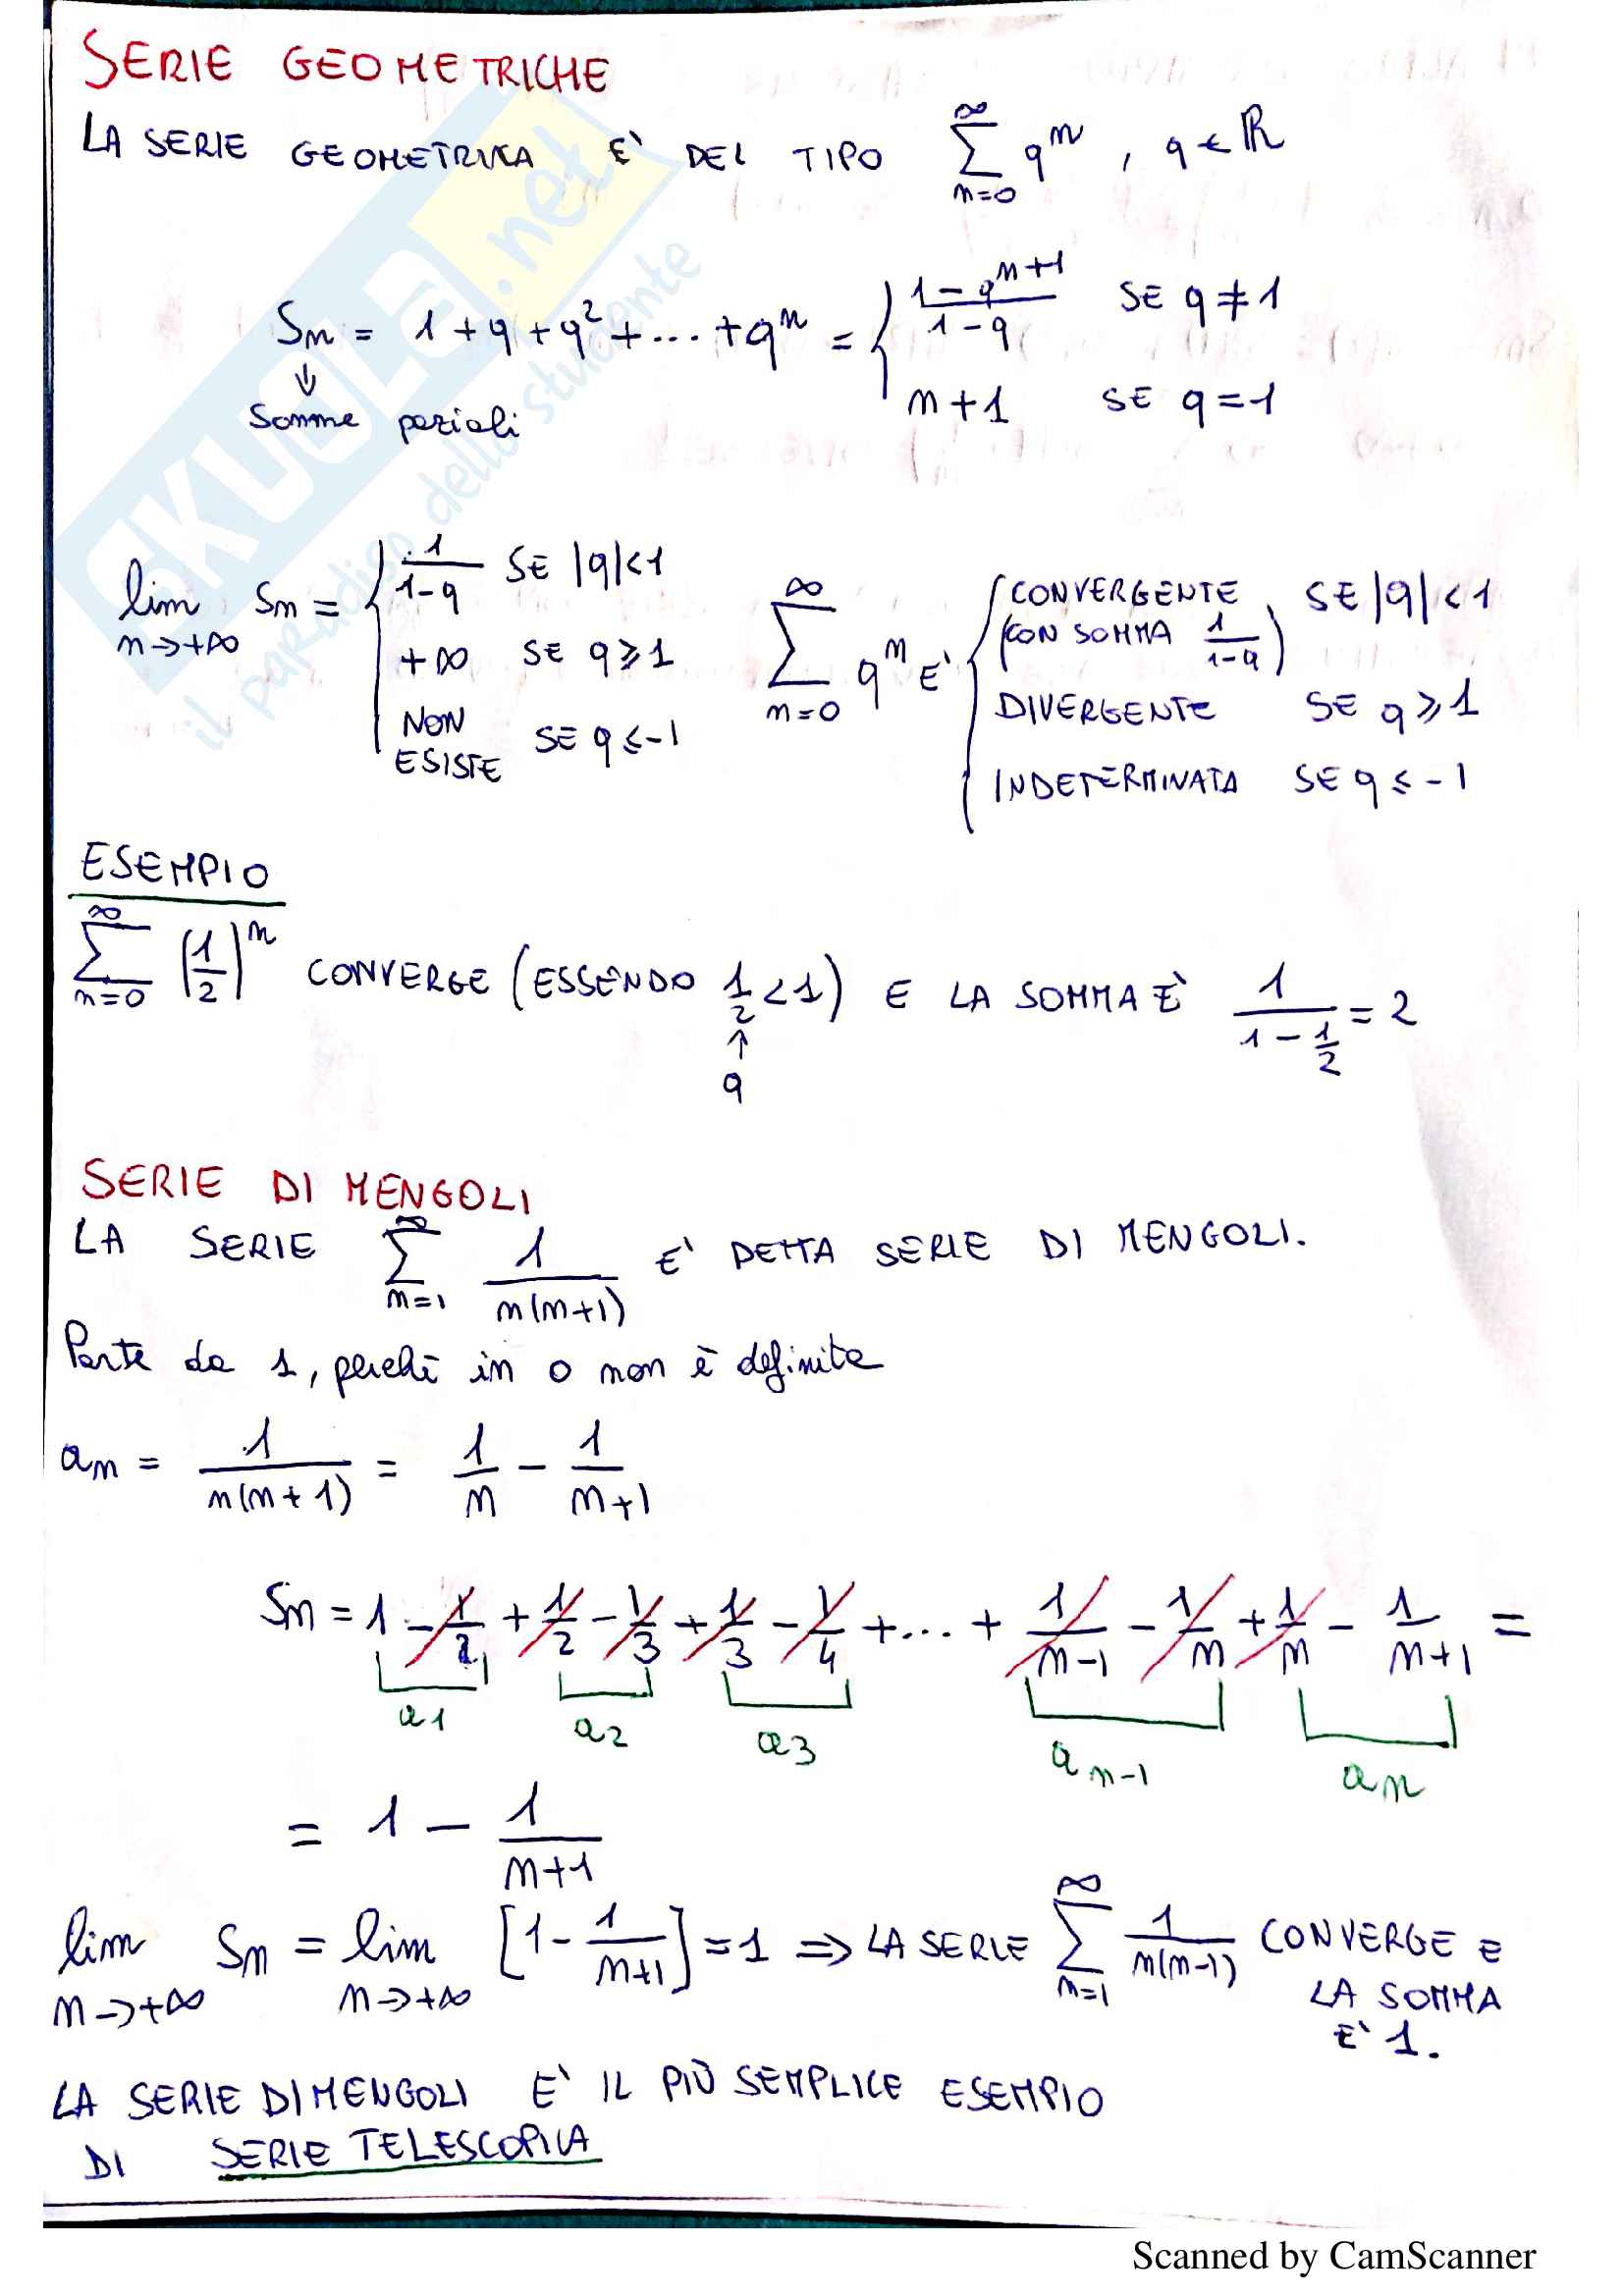 SERIE GEOMETRICHE
LA SERIE GEOMETRICA E' DEL TIPO ∑_{n=0}^{∞} q^n , q ∈ ℝ
Sn = 1 + q + q² + ... + q^n = { (1 - q^{n+1})/(1 - q) SE q ≠ 1
n+1 SE q = 1
↓
Somme parziali
lim_{n→+∞} Sn = { 1/(1-q) SE |q|<1
+∞ SE q ⩾ 1
NON ESISTE SE q ≤ -1
∑_{n=0}^{∞} q^n E' { CONVERGENTE (CON SOMMA 1/(1-q)) SE |q| < 1
DIVERGENTE SE q ⩾ 1
INDETERMINATA SE q ≤ -1
ESEMPIO
∑_{n=0}^{∞} (1/2)^n CONVERGE (ESSENDO 1/2 < 1) E LA SOMMA È 1/(1 - 1/2) = 2
↑
q
SERIE DI MENGOLI
LA SERIE ∑_{n=1}^{∞} 1/(n(n+1)) E' DETTA SERIE DI MENGOLI.
Parte da 1, perchè in 0 non è definita
an = 1/(n(n+1)) = 1/n - 1/(n+1)
Sn = 1 - 1/2 + 1/2 - 1/3 + 1/3 - 1/4 + ... + 1/(n-1) - 1/n + 1/n - 1/(n+1) =
a1 a2 a3 a n-1 an
= 1 - 1/(n+1)
lim_{n→+∞} Sn = lim_{n→+∞} [1 - 1/(n+1)] = 1 ⇒ LA SERIE ∑_{n=1}^{∞} 1/(n(n-1)) CONVERGE E
LA SOMMA
E' 1.
LA SERIE DI MENGOLI E' IL PIÙ SEMPLICE ESEMPIO
DI SERIE TELESCOPICA
SKUOLA.net
il paradiso dello studente
Scanned by CamScanner